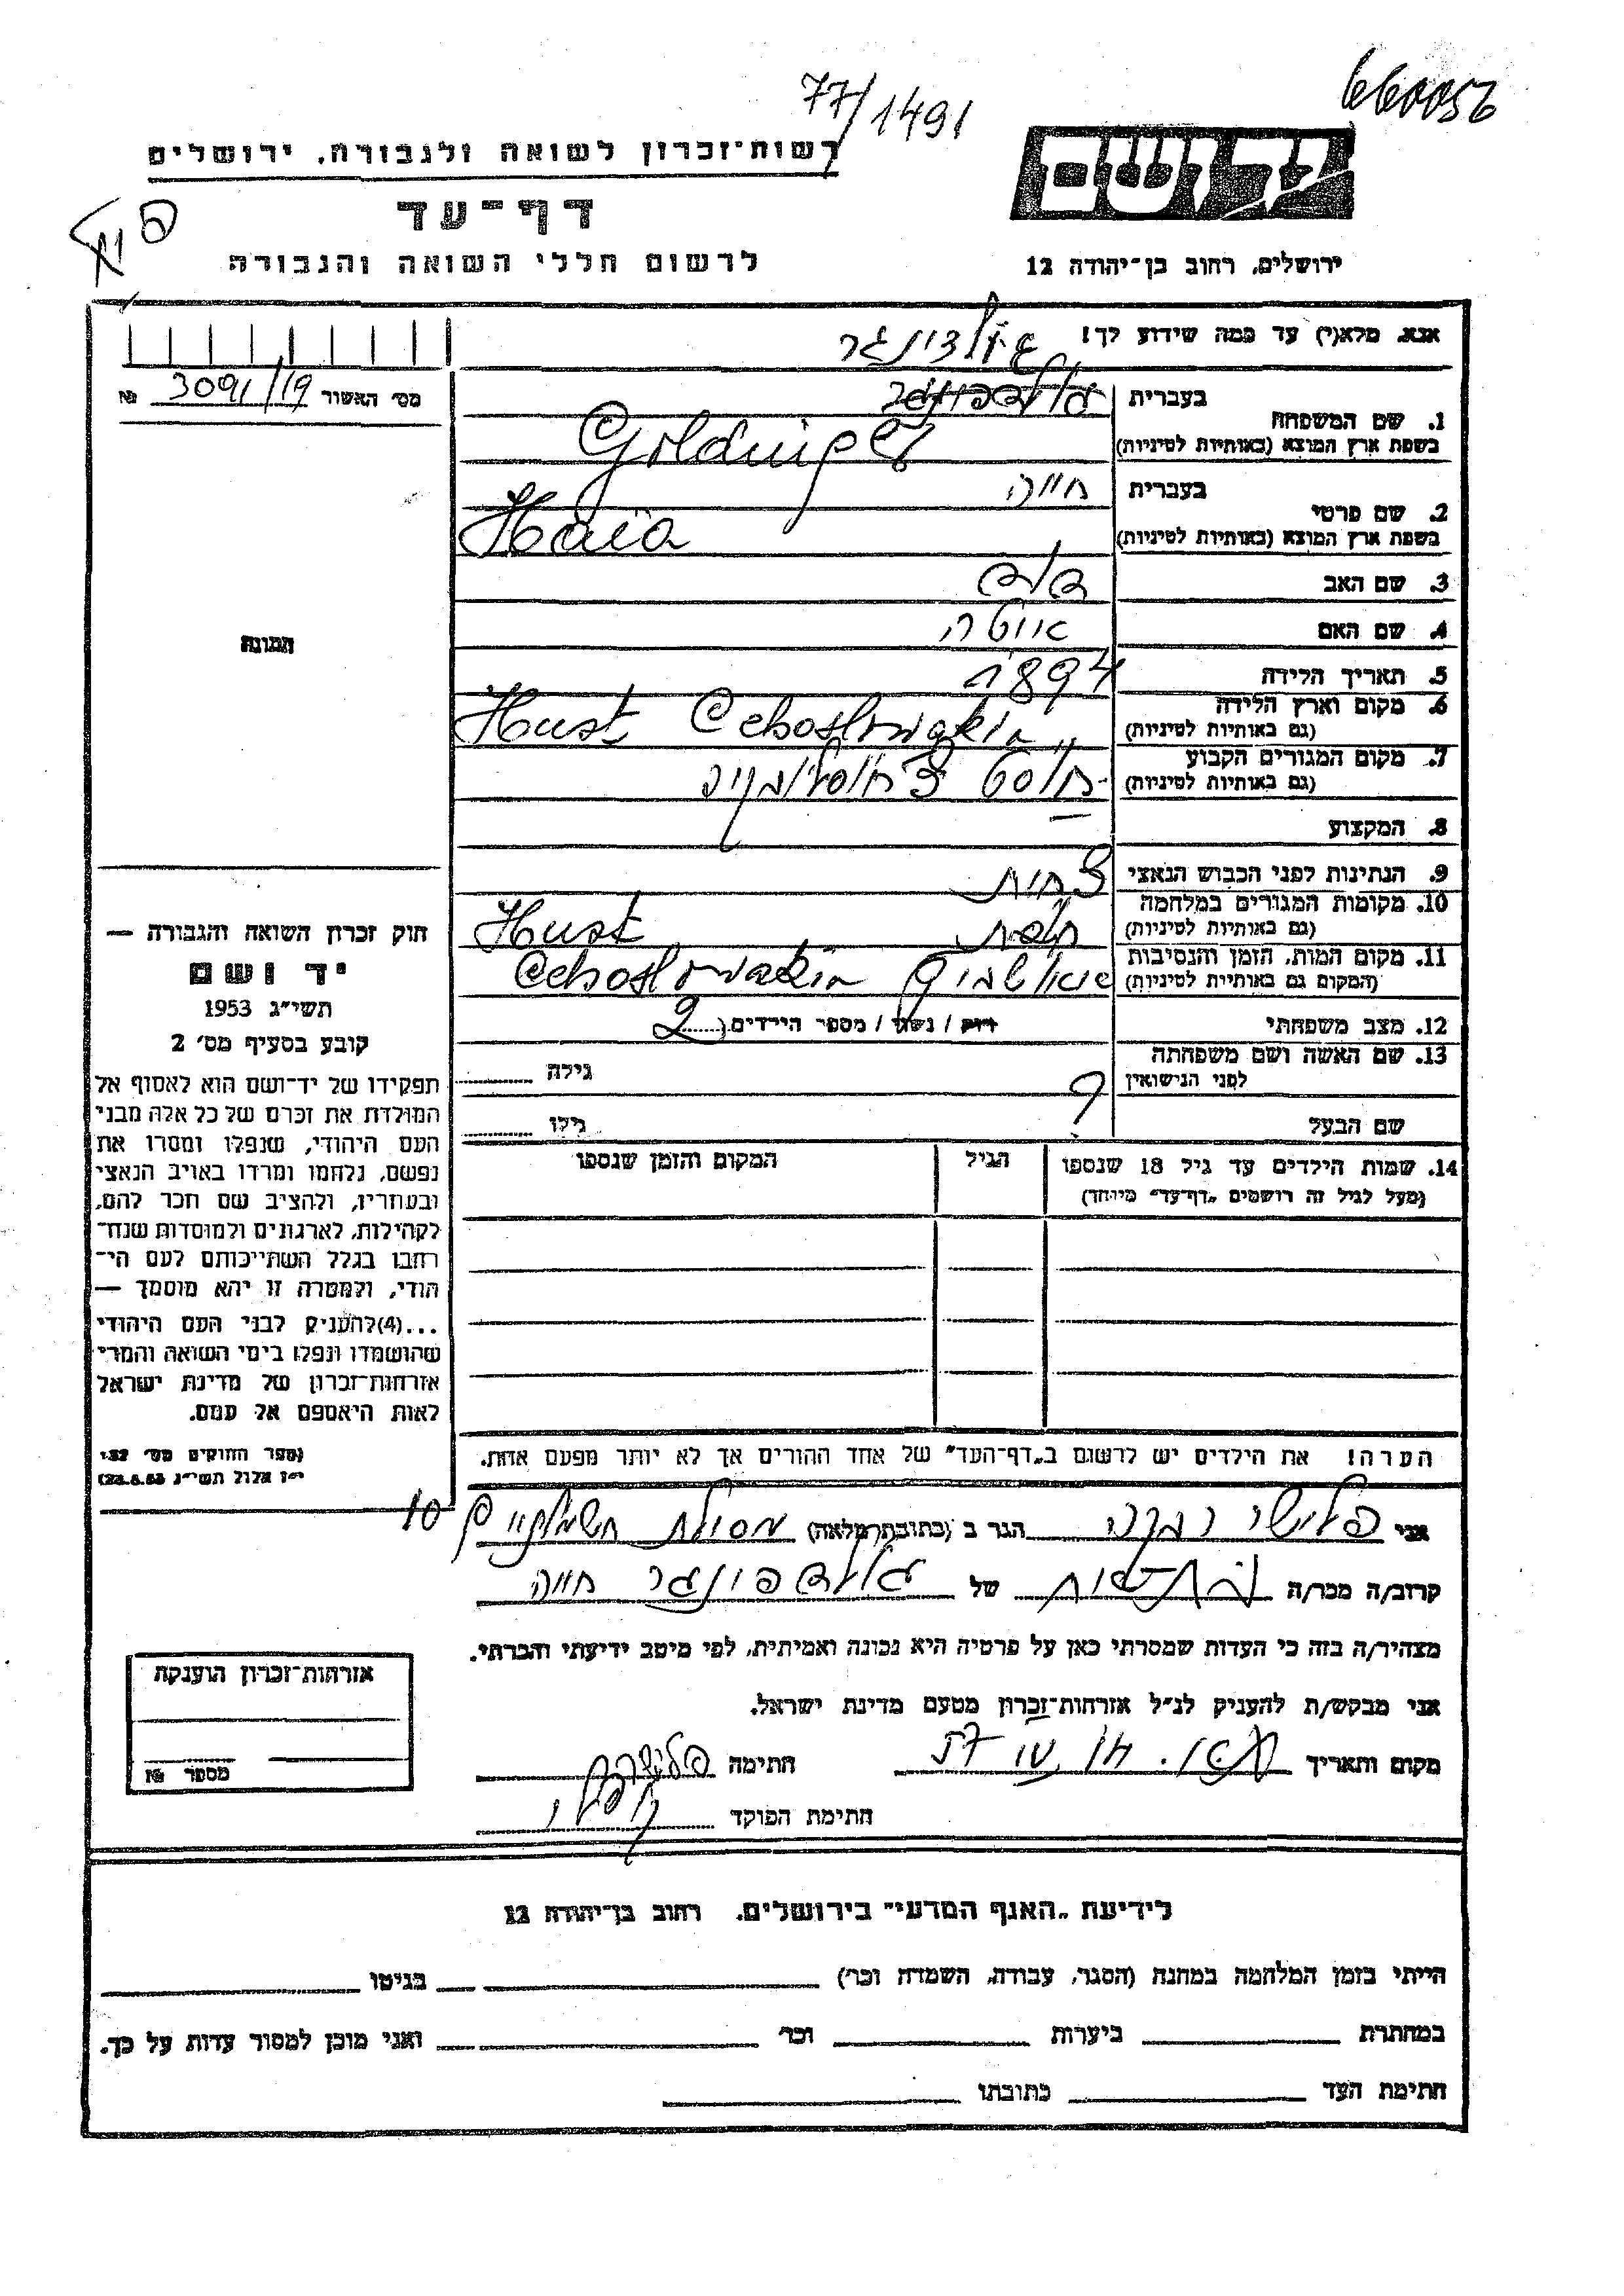 660056
77/1491
יד ושם
רשות-זכרון לשואה ולגבורה, ירושלים
דף-עד
ירושלים, רחוב בן-יהודה 12
לרשום חללי השואה והגבורה
אנא, מלא(י) עד כמה שידוע לך!
גולדינגר
מס' האשור 3091/19 №
1. שם המשפחה
בעברית
בשפת ארץ המוצא (באותיות לטיניות) Goldinger
2. שם פרטי
בעברית חייה
בשפת ארץ המוצא (באותיות לטיניות) Haïa
3. שם האב דוד
4. שם האם
תמונה
5. תאריך הלידה 1894
6. מקום וארץ הלידה
(גם באותיות לטיניות) Hust
7. מקום המגורים הקבוע
(גם באותיות לטיניות) חוסט
8. המקצוע —
9. הנתינות לפני הכבוש הנאצי
10. מקומות המגורים במלחמה
(גם באותיות לטיניות) Hust
11. מקום המות, הזמן והנסיבות
(המקום גם באותיית לטיניות)
12. מצב משפחתי
רוק / נשוי / מספר הילדים (2)
13. שם האשה ושם משפחתה
לפני הנישואין
גילה
?
שם הבעל
גילו
14. שמות הילדים עד גיל 18 שנספו
(מעל לגיל זה רושמים „דף-עד" מיוחד)
הגיל
המקום והזמן שנספו
חוק זכרון השואה והגבורה —
יד ושם
תשי"ג 1953
קובע בסעיף מס' 2
תפקידו של יד-ושם הוא לאסוף אל
המולדת את זכרם של כל אלה מבני
העם היהודי, שנפלו ומסרו את
נפשם, נלחמו ומרדו באויב הנאצי
ובעוזריו, ולהציב שם וזכר להם,
לקהילות, לארגונים ולמוסדות שנח-
רבו בגלל השתייכותם לעם הי-
הודי, ולמטרה זו יהא מוסמך —
...(4) להעניק לבני העם היהודי
שהושמדו ונפלו בימי השואה והמרי
אזרחות-זכרון של מדינת ישראל
לאות היאספם אל עמם.
(ספר החוקים מס' 132,
י"ז אלול תשי"ג 28.8.53)
הערה! את הילדים יש לרשום ב„דף-העד" של אחד ההורים אך לא יותר מפעם אחת.
אני רבקה הגר ב (כתובת מלאה) 10
קרוב/ה מכר/ה של חייה
מצהיר/ה בזה כי העדות שמסרתי כאן על פרטיה היא נכונה ואמיתית, לפי מיטב ידיעתי והכרתי.
אני מבקש/ת להעניק לנ"ל אזרחות-זכרון מטעם מדינת ישראל.
מקום ותאריך
חתימה
חתימת הפוקד
אזרחות-זכרון הוענקה
מספר №
לידיעת „האגף המדעי" בירושלים, רחוב בן-יהודה 12
הייתי בזמן המלחמה במחנה (הסגר, עבודה, השמדה וכר') בגיטו
במחתרת ביערות וכר' ואני מוכן למסור עדות על כך.
חתימת העד כתובתו